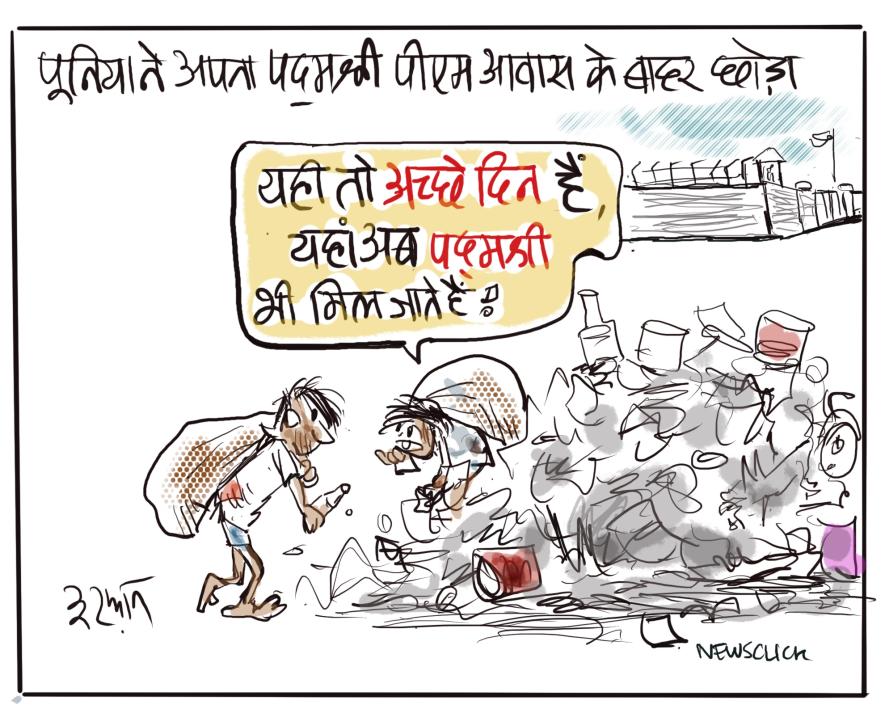 पूनिया ने अपना पद्मश्री पीएम आवास के बाहर छोड़ा
यही तो अच्छे दिन हैं,
यहां अब पद्मश्री
भी मिल जाते हैं !
इरफ़ान
NEWSCLICK